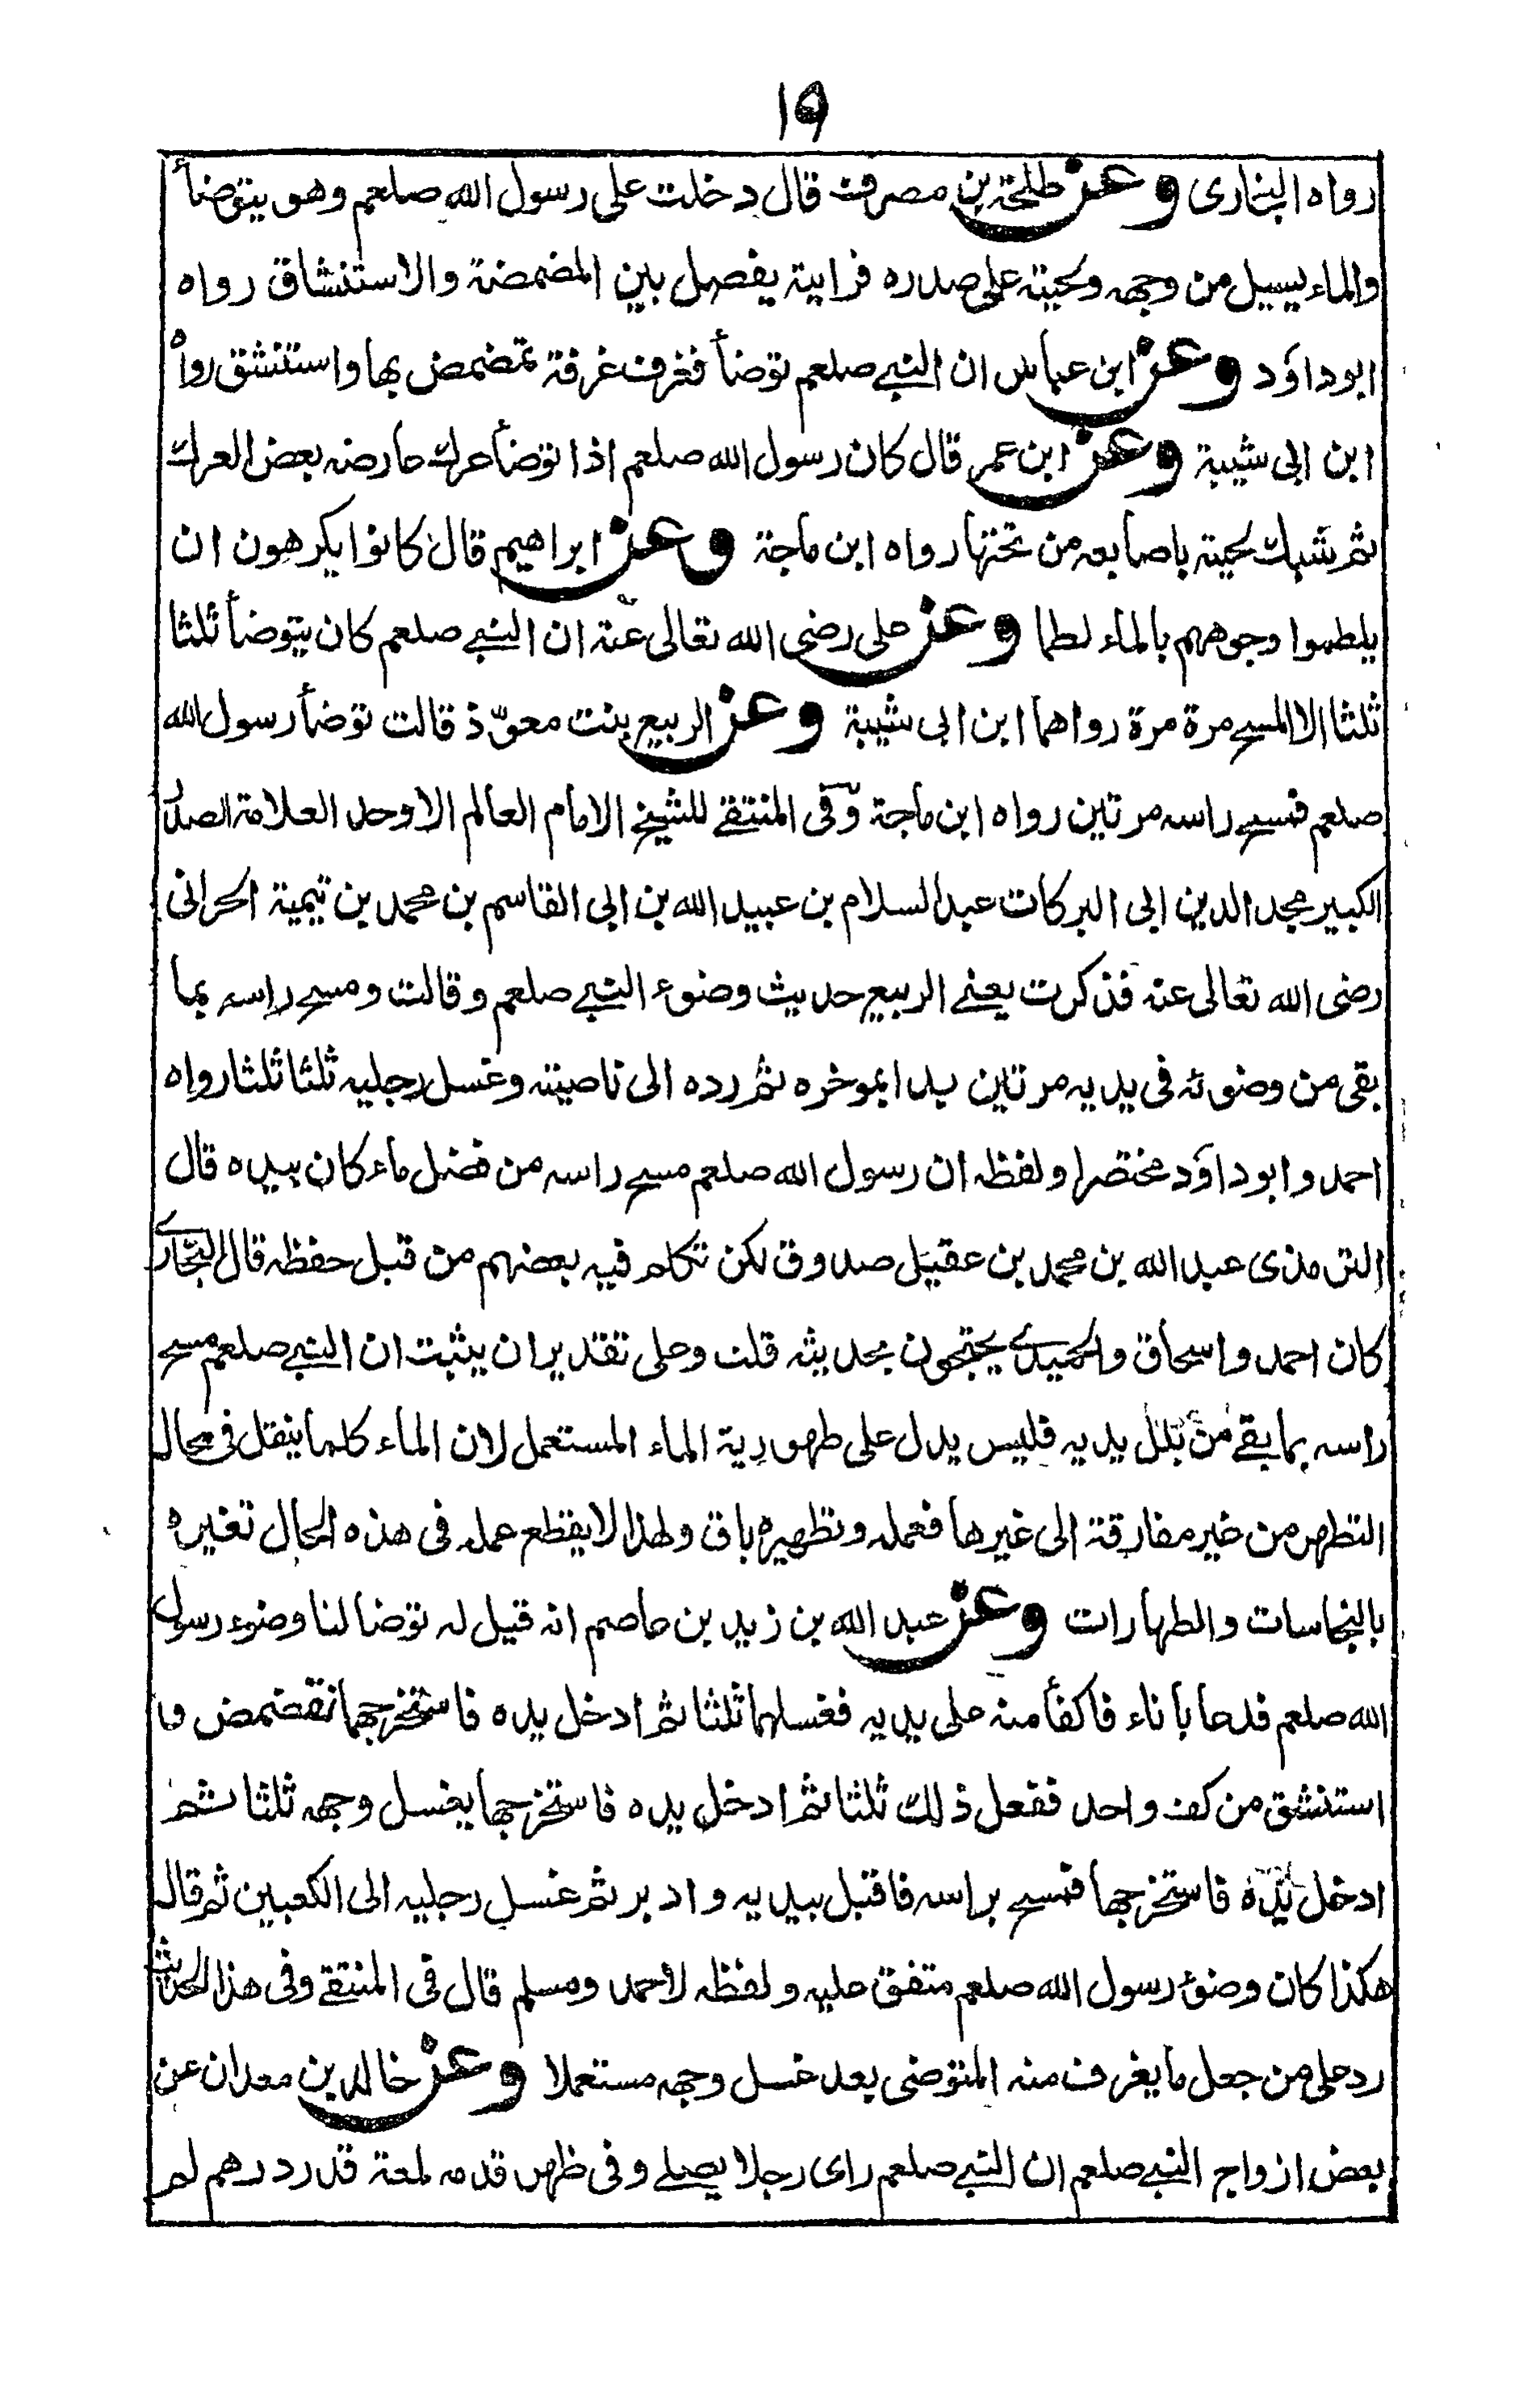 ١٩
رواه البخارى وعن طلحة بن مصرف قال دخلت على رسول الله صلعم وهو يتوضأ
والماء يسيل من وجهه ولحيته على صدره فرايته يفصل بين المضمضة والاستنشاق رواه
ابوداؤد وعن ابن عباس ان النبى صلعم توضأ فغرف غرفة تمضمض بها واستنشق رواه
ابن ابى شيبة وعن ابن عمر قال كان رسول الله صلعم اذا توضأ عرك عارضه بعض العرك
ثم شبك لحيته باصابعه من تحتها رواه ابن ماجة وعن ابراهيم قال كانوا يكرهون ان
يلطموا وجوههم بالماء لطما وعن على رضى الله تعالى عنه ان النبى صلعم كان يتوضأ ثلثا
ثلثا الا المسح مرة مرة رواهما ابن ابى شيبة وعن الربيع بنت معوّذ قالت توضأ رسول الله
صلعم فمسح راسه مرتين رواه ابن ماجة وفى المنتقى للشيخ الامام العالم الاوحد العلامة الصدر
الكبير مجد الدين ابى البركات عبد السلام بن عبيد الله بن ابى القاسم بن محمد بن تيمية الحرانى
رضى الله تعالى عنه فذكرت يعنى الربيع حديث وضوء النبى صلعم وقالت ومسح راسه بما
بقى من وضوئه فى يديه مرتين بدا بموخره ثم رده الى ناصيته وغسل رجليه ثلثا ثلثا رواه
احمد وابو داؤد مختصرا ولفظه ان رسول الله صلعم مسح راسه من فضل ماء كان بيده قال
الترمذى عبد الله بن محمد بن عقيل صدوق لكن تكلم فيه بعضهم من قبل حفظه قال البخارى
كان احمد واسحاق والحميدى يحتجون بحديثه قلت وعلى تقدير ان يثبت ان النبى صلعم مسح
راسه بما بقى من بلل يديه فليس يدل على طهورية الماء المستعمل لان الماء كلما ينقل فى محال
التطهر من غير مفارقة الى غيرها فعمله وتطهيره باق ولهذا لا يقطع عمله فى هذه الحال تغيره
بالنجاسات والطهارات وعن عبد الله بن زيد بن عاصم انه قيل له توضا لنا وضوء رسول
الله صلعم فدعا باناء فاكفأ منه على يديه فغسلهما ثلثا ثم ادخل يده فاستخرجها فتمضمض و
استنشق من كف واحد ففعل ذلك ثلثا ثم ادخل يده فاستخرجها يغسل وجهه ثلثا ثم
ادخل يده فاستخرجها فمسح براسه فاقبل بيديه وادبر ثم غسل رجليه الى الكعبين ثم قال
هكذا كان وضوء رسول الله صلعم متفق عليه ولفظه لاحمد ومسلم قال فى المنتقى وفى هذا الحديث
رد على من جعل ما يغرف منه المتوضى بعد غسل وجهه مستعملا وعن خالد بن معدان عن
بعض ازواج النبى صلعم ان النبى صلعم راى رجلا يصلى وفى ظهر قدمه لمعة قدر درهم لم